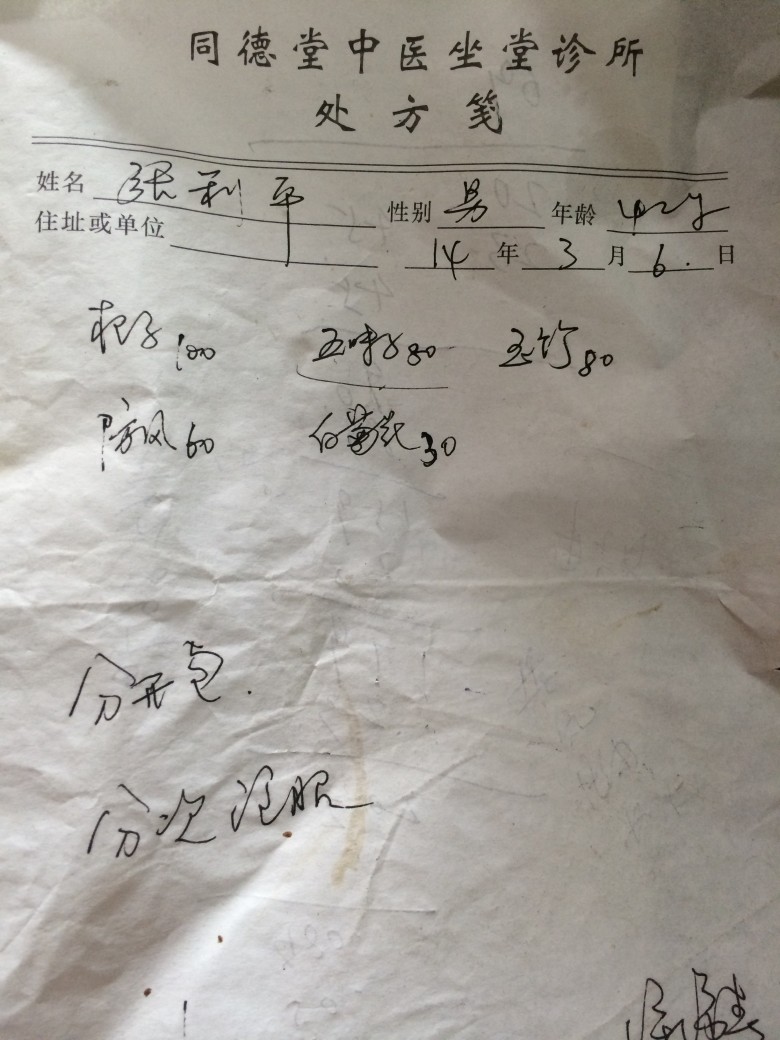 同德堂中医坐堂诊所
处方笺
姓名 张利平 性别 男 年龄 42岁
住址或单位 14年3月6.日
杞子100 五味子80 玉竹80
防风60 白菊花30
分开包.
分次泡服